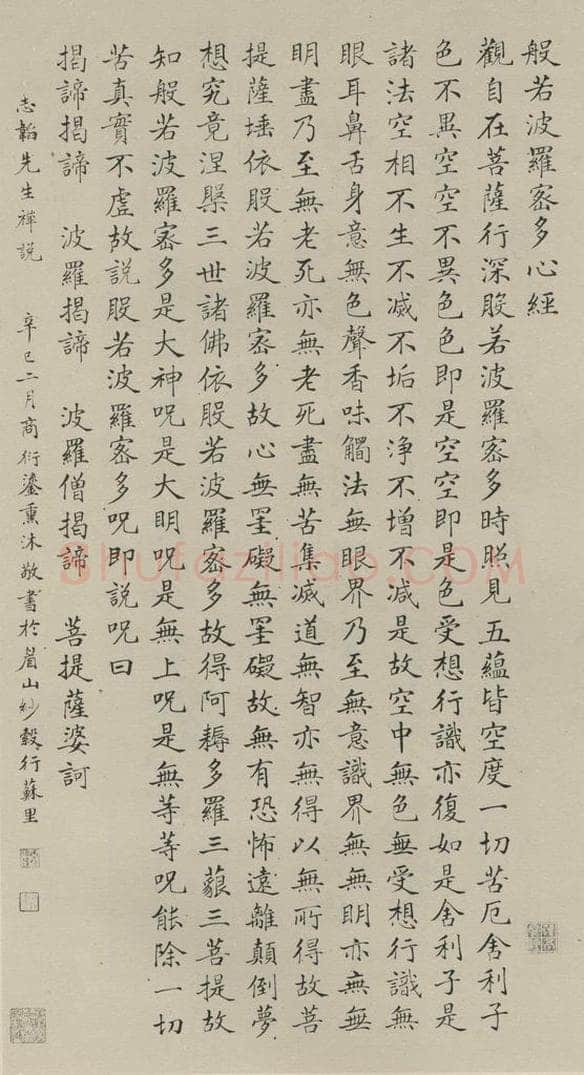 般若波羅密多心經
觀自在菩薩行深般若波羅密多時照見五蘊皆空度一切苦厄舍利子
色不異空空不異色色即是空空即是色受想行識亦復如是舍利子是
諸法空相不生不滅不垢不淨不增不減是故空中無色無受想行識無
眼耳鼻舌身意無色聲香味觸法無眼界乃至無意識界無無明亦無無
明盡乃至無老死亦無老死盡無苦集滅道無智亦無得以無所得故菩
提薩埵依般若波羅密多故心無罣礙無罣礙故無有恐怖遠離顛倒夢
想究竟涅槃三世諸佛依般若波羅密多故得阿耨多羅三藐三菩提故
知般若波羅密多是大神咒是大明咒是無上咒是無等等咒能除一切
苦真實不虛故說般若波羅密多咒即說咒曰
揭諦揭諦 波羅揭諦 波羅僧揭諦 菩提薩婆訶
志韜先生禪說 辛巳二月商衍鎏熏沐敬書於眉山紗縠行蘇里
shufaziliao.COM